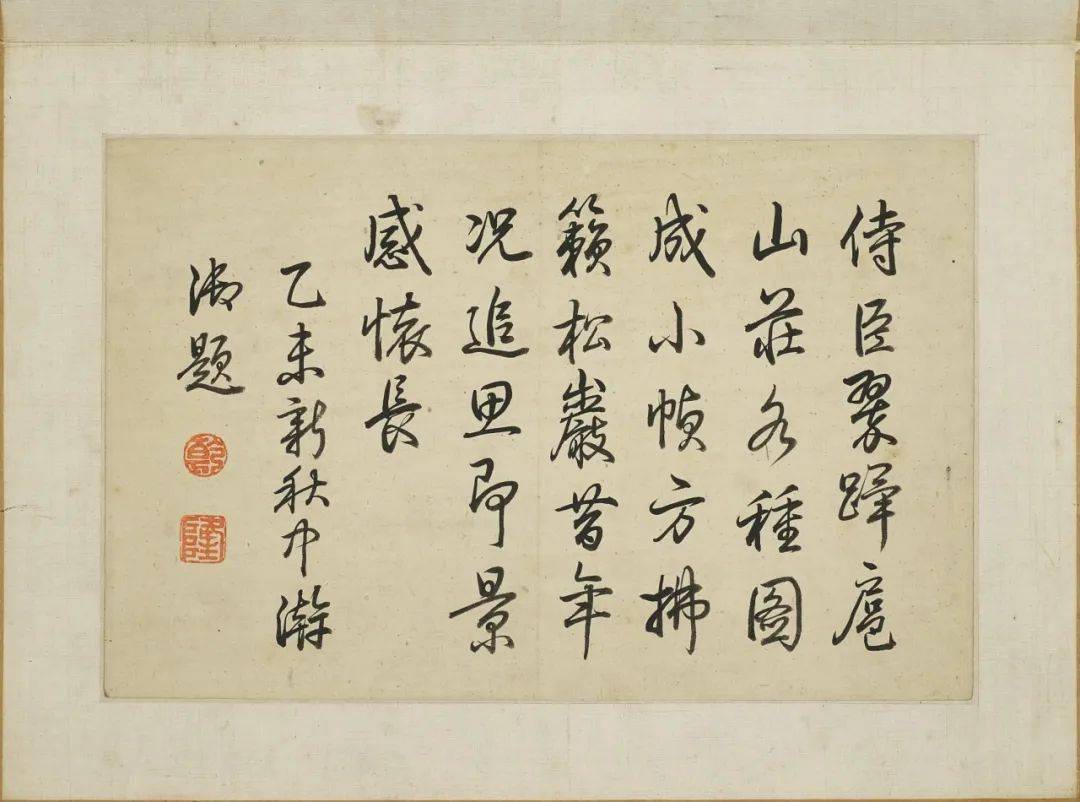 侍臣翠蹕扈
山莊各種圖
成小幀方拂
籟松巖昔年
況追思即景
感懷長
乙未新秋中澣
御題
乾
隆